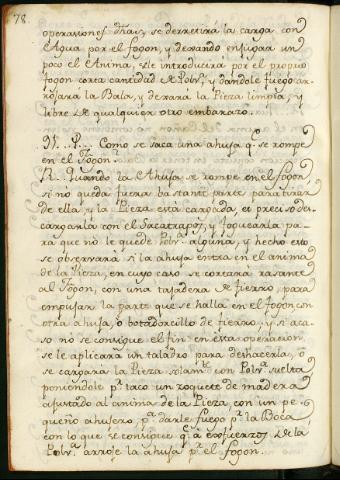 78.
operaciones dhas, se derretirá la carga con
el Agua por el fogon, y dexando enjugar un
poco el Anima, se le introducirá por el propio
fogon corta cantidad de Polv.ª y dandole fuego ar-
rojará la Bala, y dexará la Pieza limpia, y
libre de qualquier otro embarazo.
P.... Como se saca una ahuja q.e se rompe
en el Fogon.
R.. Quando la Ahuja se rompe en el fogon
si no queda fuera bastante parte para tirar
de ella, y la Pieza está cargada, es preciso des-
cargarla con el Sacatrapos, y foguearla pa-
ra que no le quede Polv.ª alguna, y hecho esto
se observará si la ahuja entra en el anima
de la Pieza, en cuyo caso se cortará rasante
al Fogon, con una tajadera de fierro, para
empujar la parte que se halla en el fogon con
otra ahuja, o botadorcillo de fierro, y si aca-
so no se consigue el fin en esta operacion,
se le aplicará un taladro para deshacerla, ó
se cargará la Pieza solam.te con Polv.ª suelta
poniendole p.r taco un zoquete de madera
ajustado al anima de la Pieza, con un pe-
queño ahujero, p.ª darle fuego p.r la Boca
con lo que se consigue q.e a esfuerzos de la
Polv.ª arroje la ahuja p.r el fogon.